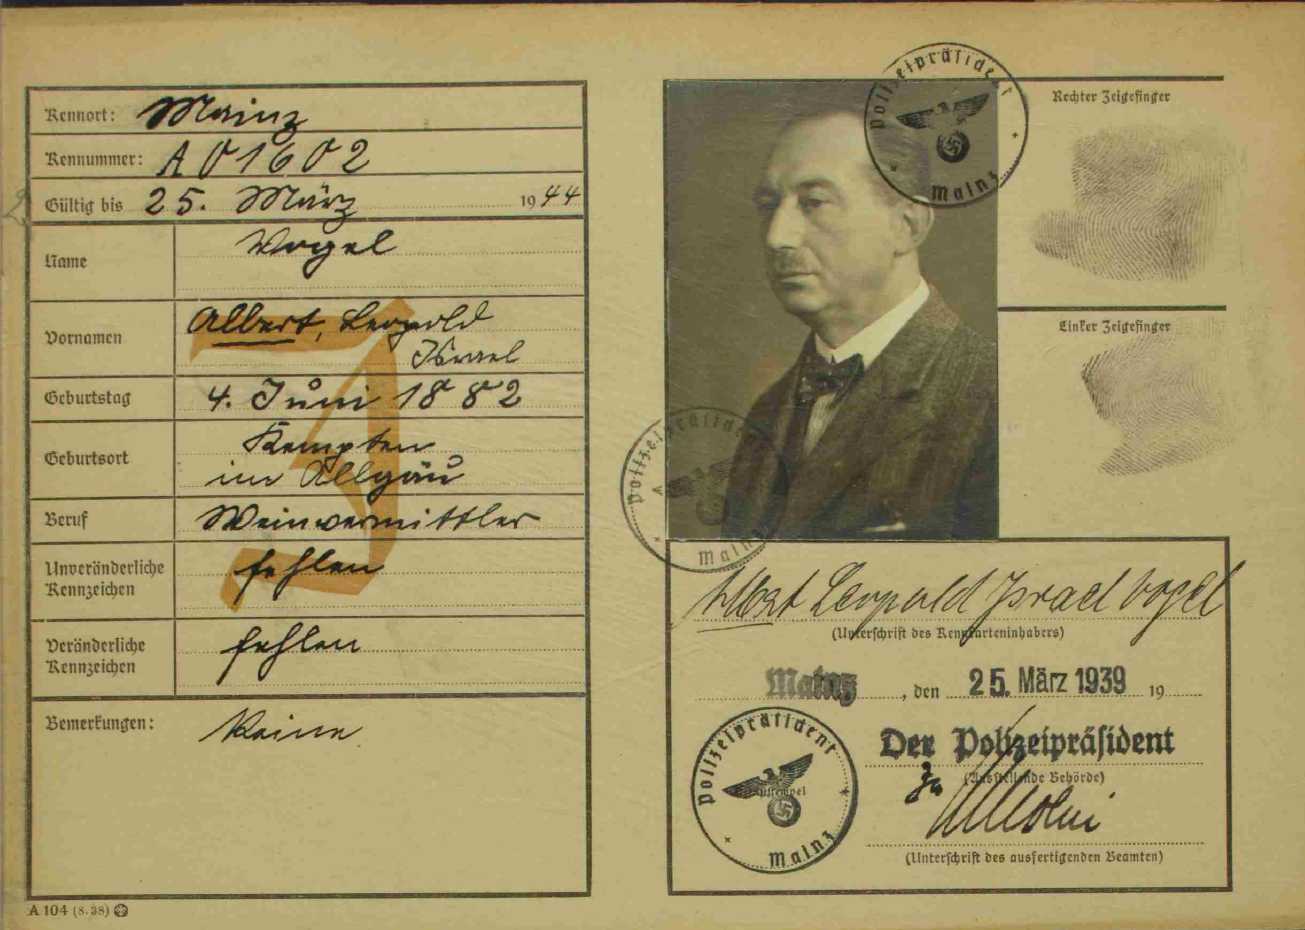 Kennort: Mainz
Kennummer: A 01602
Gültig bis 25. März 1944
Name Vogel
Vornamen Albert, Leopold
Israel
Geburtstag 4. Juni 1882
Geburtsort Kempten
im Allgäu
Beruf Weinvermittler
Unveränderliche Kennzeichen fehlen
Veränderliche Kennzeichen fehlen
Bemerkungen: Keine
A 104 (8. 38)
J
Polizeipräsident
Mainz
Rechter Zeigefinger
Linker Zeigefinger
Polizeipräsident
Mainz
Albert Leopold Israel Vogel
(Unterschrift des Kennkarteninhabers)
Mainz, den 25. März 1939 19
Der Polizeipräsident
(Ausstellende Behörde)
Polizeipräsident
Mainz
(Unterschrift des ausfertigenden Beamten)